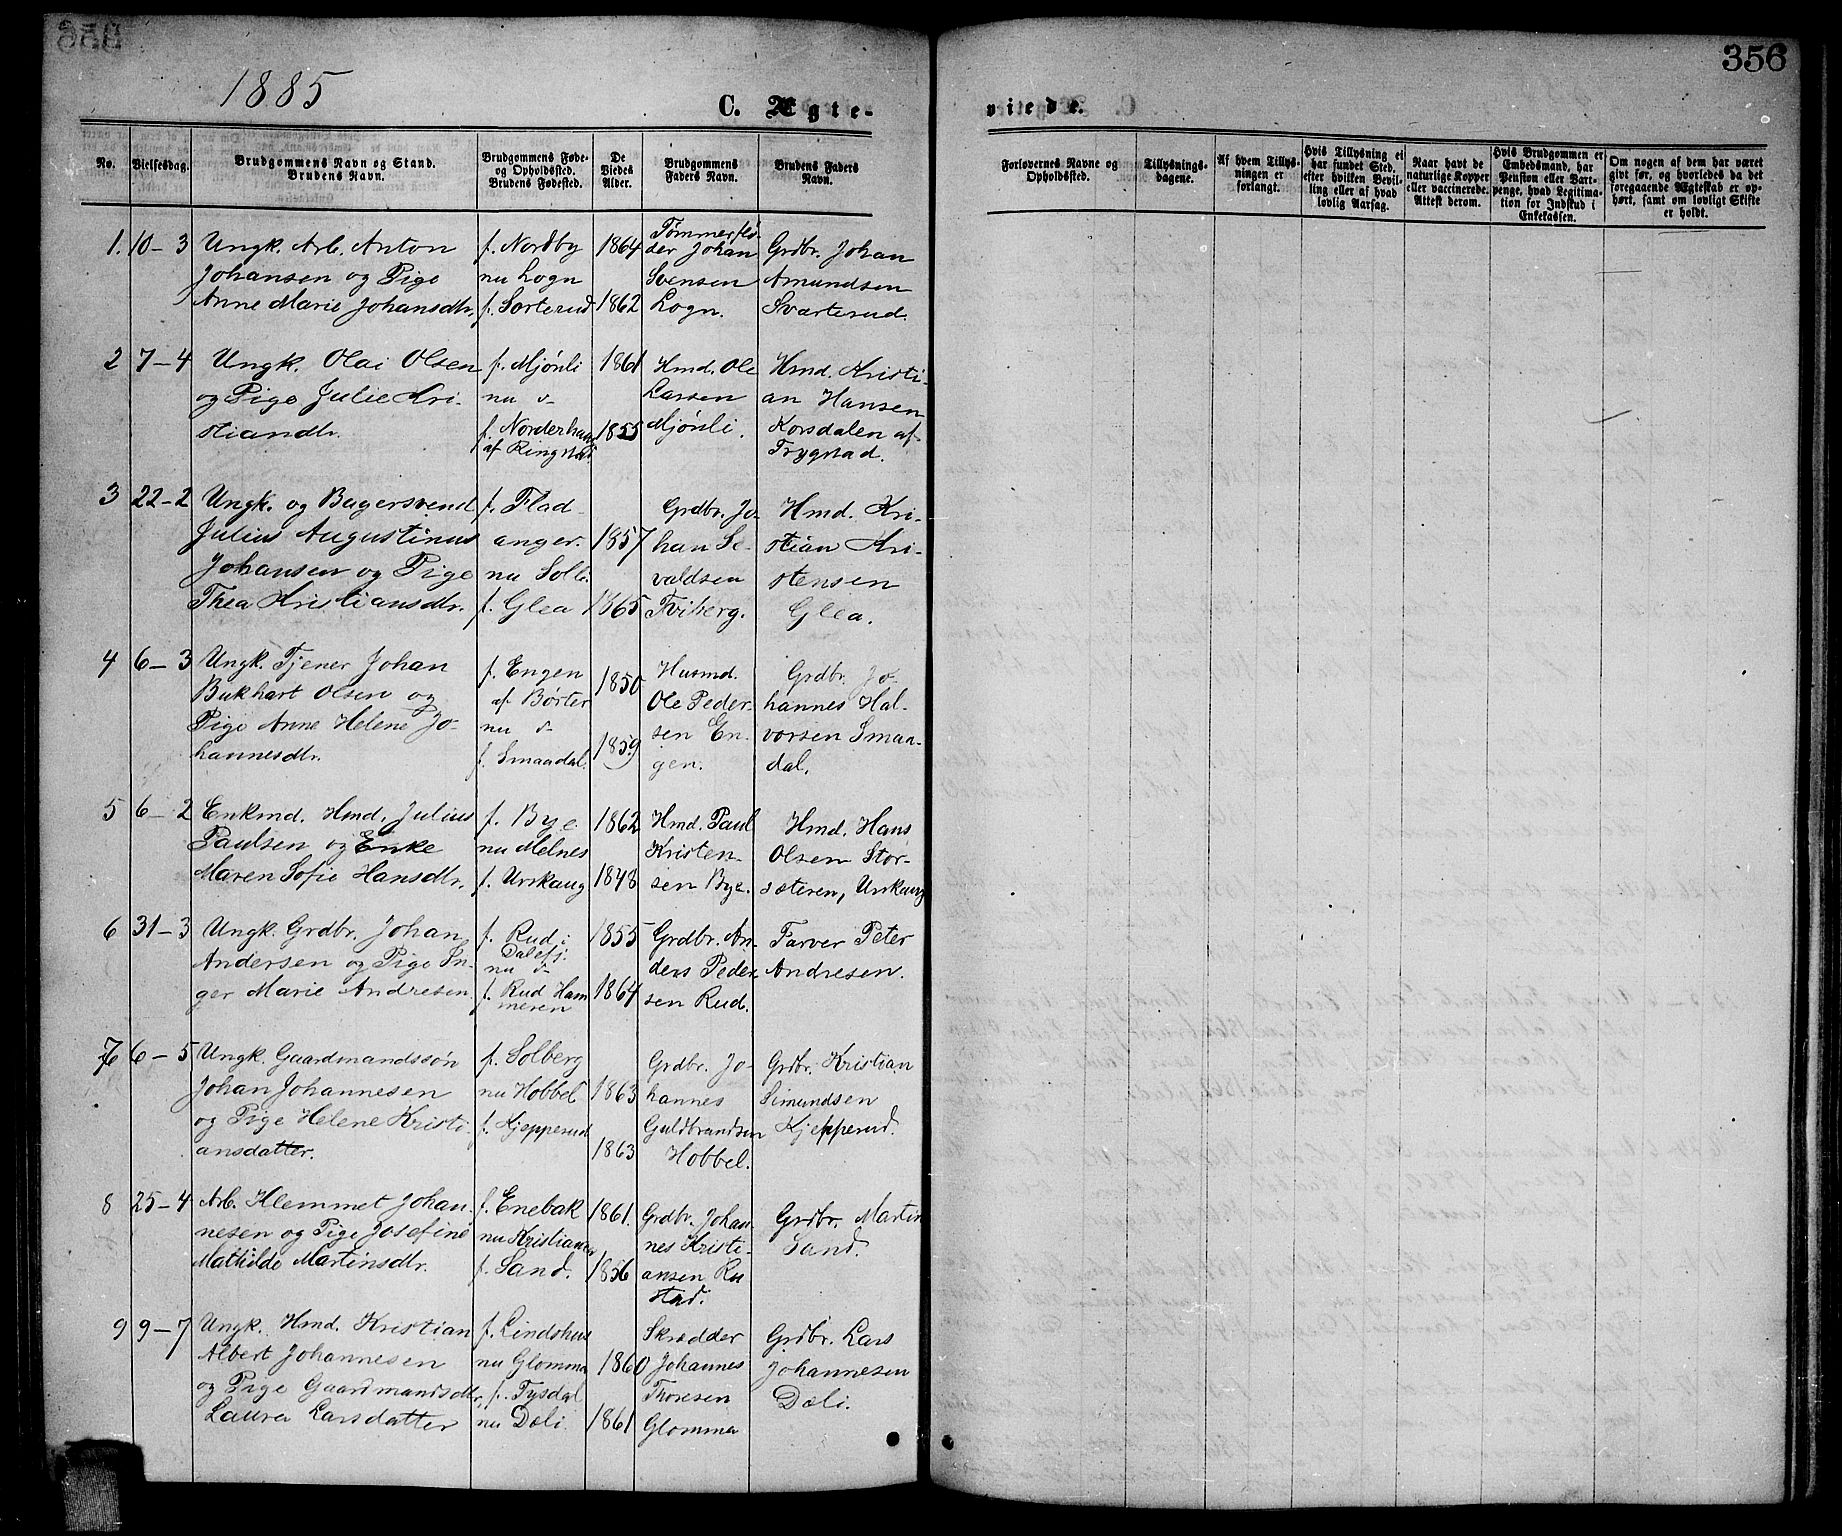 356
1885
C. Ægte-
viede.
No.
Vielsesdag.
Brudgommens Navn og Stand.
Brudens Navn.
Brudgommens Føde-
og Opholdssted.
Brudens Fødested.
De
Viedes
Alder.
Brudgommens
Faders Navn.
Brudens Faders
Navn.
Forlovernes Navne og
Opholdssted.
Tillysnings-
dagene.
Af hvem Tillys-
ningen er
forlangt.
Hvis Tillysning ei
har fundet Sted,
efter hvilken Bevil-
ling eller af hvad
lovlig Aarsag.
Naar havt de
naturlige Kopper
eller vaccinerede.
Attest derom.
Hvis Brudgommen er
Embedsmand, har
Pension eller Vart-
penge, hvad Legitima-
tion for Indskud i
Enkekassen.
Om nogen af dem har været
gift før, og hvorledes da det
foregaaende Ægteskab er op-
hørt, samt om lovligt Skifte
er holdt.
1. 10-3
Ungk. Arb. Anton
Johansen og Pige
Anne Marie Johansdtr.
f. Nordby
nu Logn
f. Sorterud
1864
1862
Tømmerflø
der Johan
Svensen
Logn.
Grdbr. Johan
Amundsen
Svarterud.
2 7-4
Ungk. Olai Olsen
og Pige Julie Kri-
stiandtr.
f. Mjønli
nu d-
f. Norderhaug
af Ringstad.
1861
1855
Hmd. Ole
Larsen
Mjønli.
Hmd. Kristi-
an Hansen
Korsdalen af
Trygstad.
3 22-2
Ungk. og Bagersvend
Julius Augustinus
Johansen og Pige
Thea Kristiansdtr.
f. Flad-
anger.
nu Solli
f. Glea
1857
1865
Grdbr. Jo-
han Se-
valdsen
Tviberg.
Hmd. Kri-
stian Kri-
stensen
Glea.
4 6-3
Ungk. Tjener Johan
Bukhart Olsen og
Pige Anne Helene Jo-
hannesdtr.
f. Engen
af Børter
nu d-
f. Smaadal.
1850
1859
Husmd.
Ole Peder-
sen En-
gen.
Grdbr. Jo-
hannes Hal-
vorsen Smaa-
dal.
5 6-2
Enkmd. Hmd. Julius
Paulsen og Enke
Maren Sofie Hansdtr.
f. Bye
nu Melnes
f. Urskaug
1862
1848
Hmd. Paul
Kristen-
sen Bye.
Hmd. Hans
Olsen Stor-
sæteren, Urskaug
6 31-3
Ungk. Grdbr. Johan
Andersen og Pige In-
ger Marie Andresen
f. Rud i
Dalefj.
nu d-
f. Rud Ham
meren
1855
1864
Grdbr. An-
ders Peder-
sen Rud.
Farver Peter
Andresen.
7 6-5
Ungk. Gaardmandssøn
Johan Johannesen
og Pige Helene Kristi-
ansdatter.
f. Solberg
nu Hobbel
f. Kjepperud
1863
1863
Grdbr. Jo-
hannes
Guldbrandsen
Hobbel.
Grdbr. Kristian
Simundsen
Kjepperud.
8 25-4
Arb. Klemmet Johan-
nesen og Pige Josefine
Mathilde Martinsdtr.
f. Enebak
nu Kristiania
f. Sand.
1861.
1856
Grdbr. Johan-
nes Kristi-
ansen Ru
stad.
Grdbr. Martin
Sand.
9 9-7
Ungk. Hmd. Kristian
Albert Johannesen
og Pige Gaardmandsdtr.
Laura Larsdatter
f. Lindshus
nu Glomma
f. Tysdal
nu Dæli
1860
1861
Skrædder
Johannes
Thoresen
Glomma
Grdbr. Lars
Johannesen
Dæli.